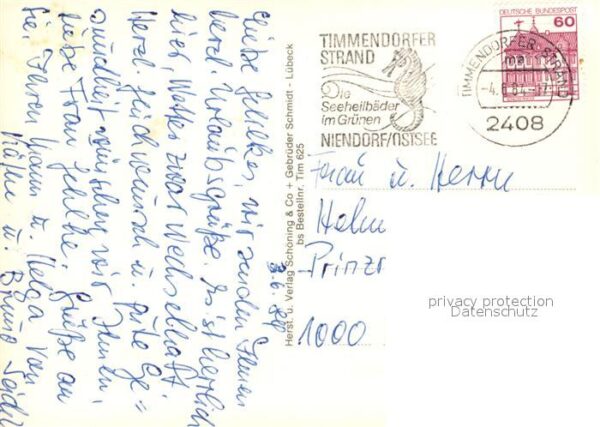 Liebe Gehlkes, wir senden Ihnen
herzl. Urlaubsgrüße. Es ist herrlich
hier, Wetter zwar wechselhaft.
Herzl. Glückwunsch u. gute Ge=
sundheit wünschen wir Ihnen,
liebe Frau Gehlke. Grüße an
Sie, Ihren Mann u. Helga von
Käthe u. Bruno
3.6.84
Herst. u. Verlag Schöning & Co + Gebrüder Schmidt - Lübeck
bs Bestellnr. Tim 625
TIMMENDORFER
STRAND
Die
Seeheilbäder
im Grünen
NIENDORF/OSTSEE
TIMMENDORFER STRAND
2408
DEUTSCHE BUNDESPOST
60
Frau u. Herrn
Prinzr
1000
privacy protection
Datenschutz